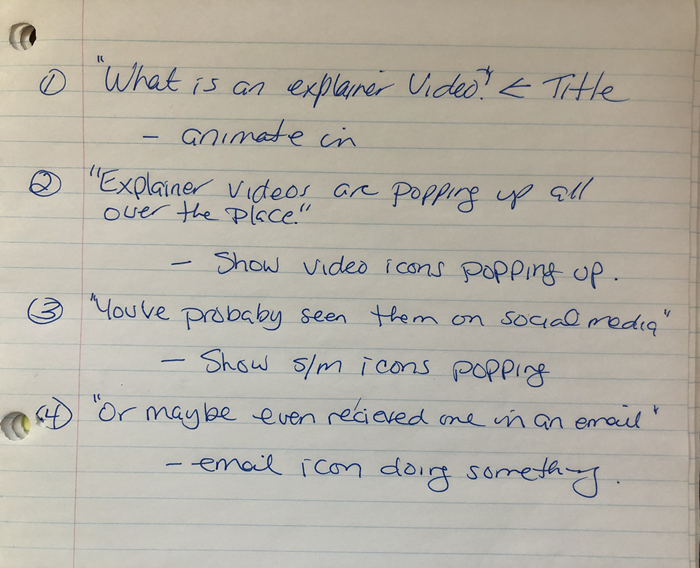 ① "What is an explainer Video?" ← Title
- animate in
② "Explainer videos are popping up all
over the place."
- Show video icons popping up.
③ "You've probaby seen them on social media"
- Show s/m icons popping
④ "Or maybe even recieved one in an email"
- email icon doing something.